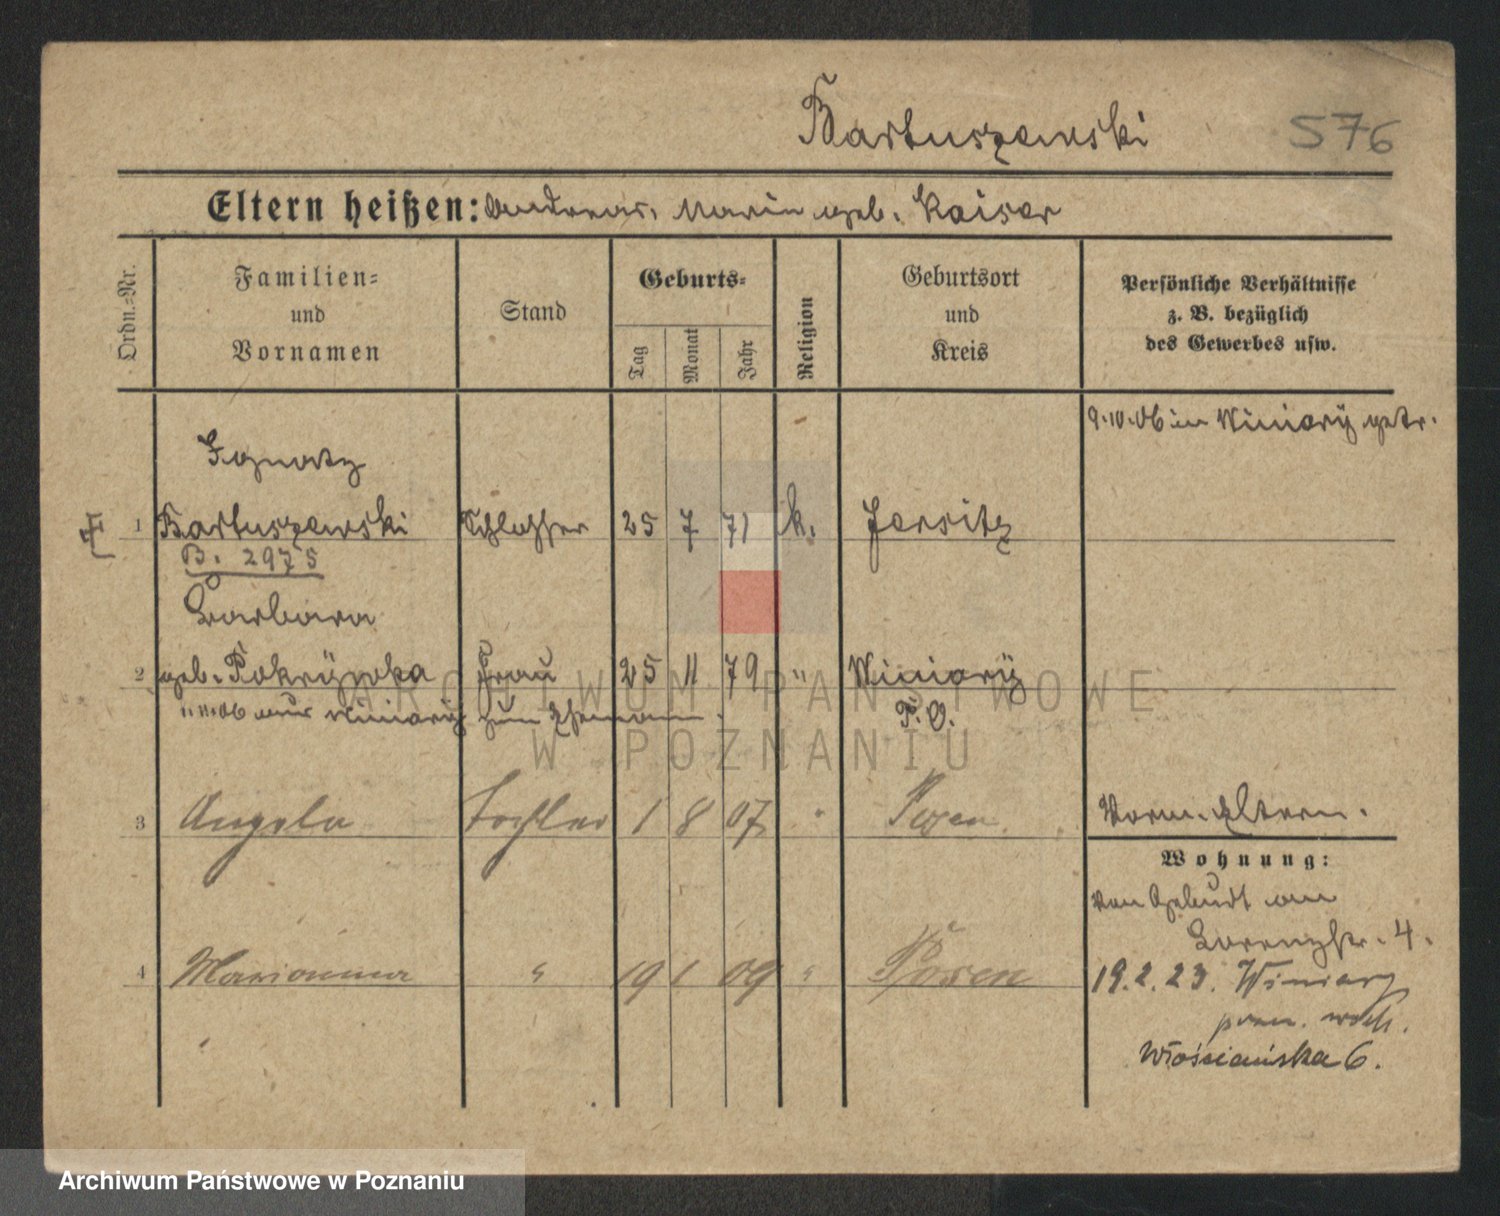 Bartuszewski
576
Eltern heißen: Andreas, Marie geb. Kaiser
Ordn.-Nr.
Familien-
und
Vornamen
Stand
Geburts-
Tag
Monat
Jahr
Religion
Geburtsort
und
Kreis
Persönliche Verhältnisse
z. B. bezüglich
des Gewerbes usw.
9.10.06 in Winiary getr.
Ignatz
1 Bartuszewski Schlosser 25 7 71 k. Jersitz
B. 2975
Barbara
2 geb. Frau 25 11 79 " Winiary
aus Winiary zum Ehemann.
P. O.
3 Angela Tochter 1 8 07 " Posen
Vorm. Eltern.
Wohnung:
Von Geburt an
Lorenzstr. 4.
4 Marianna " 19 1 09 " Posen
19.2.23. Winiary
pow. wsch.
Włościańska 6.
ARCHIWUM PAŃSTWOWE
W POZNANIU
Archiwum Państwowe w Poznaniu